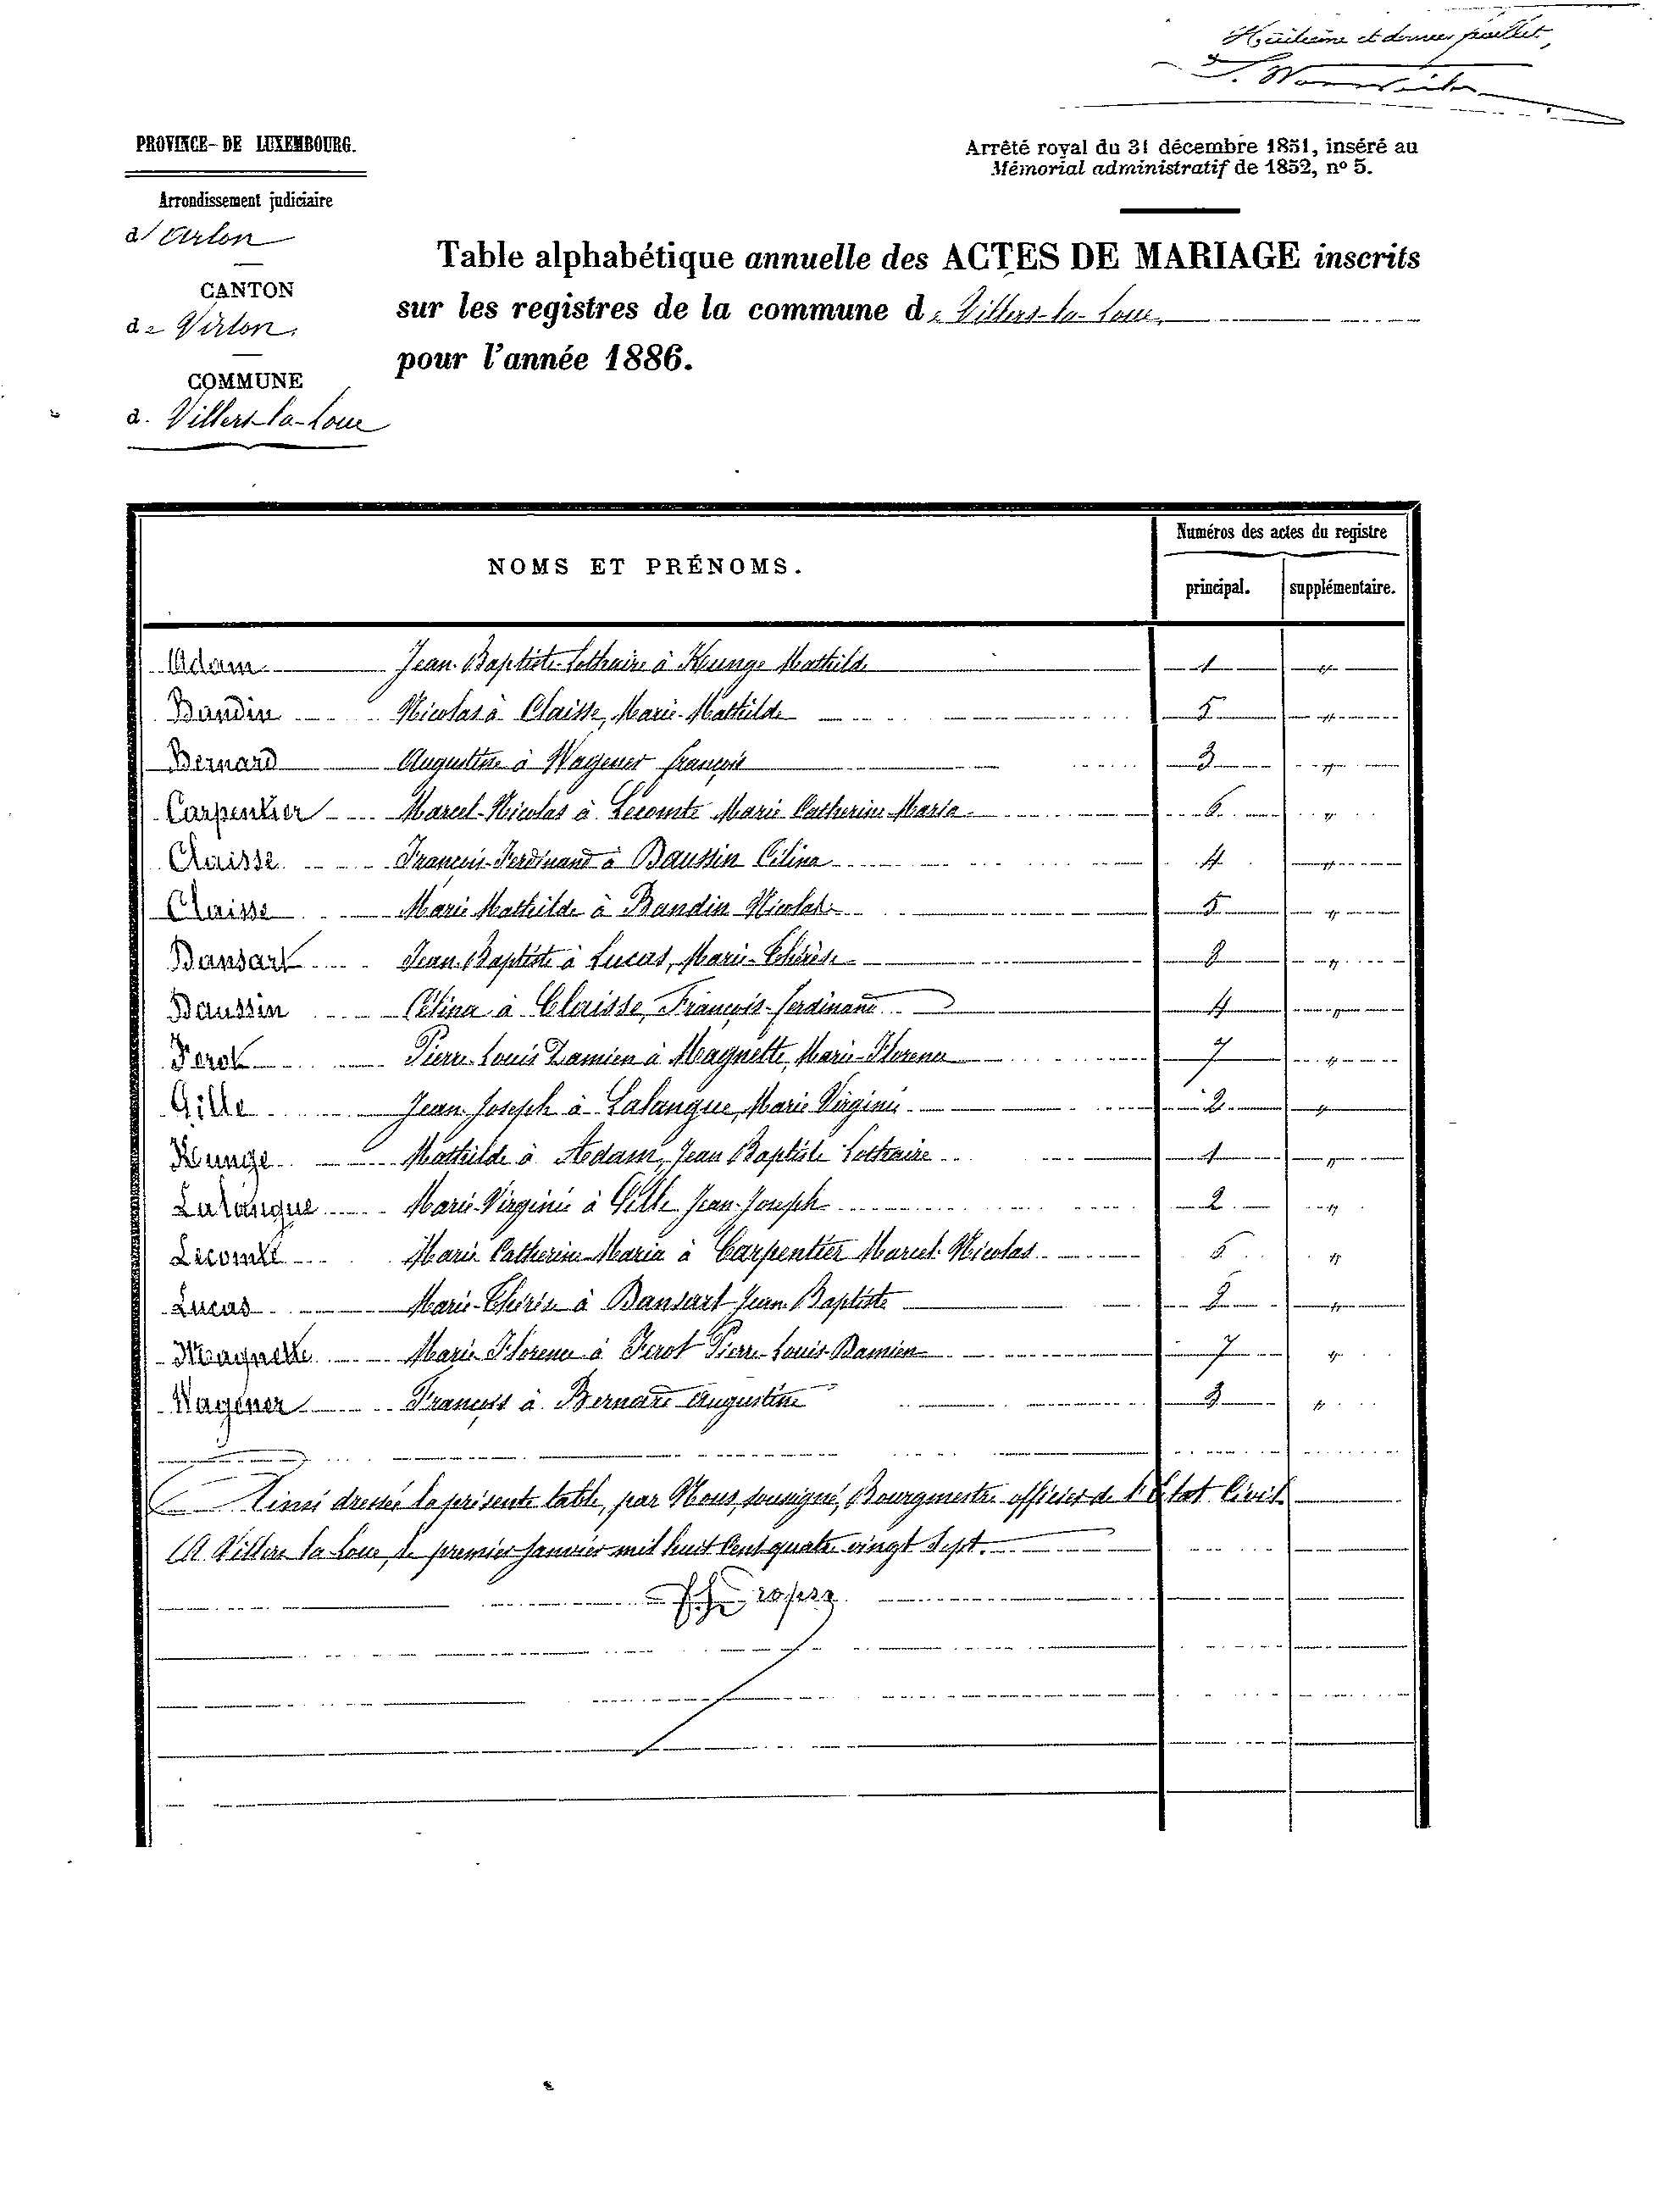 Huitième et dernier feuillet,
PROVINCE DE LUXEMBOURG.
Arrêté royal du 31 décembre 1851, inséré au
Mémorial administratif de 1852, nº 5.
Arrondissement judiciaire
d'Arlon
CANTON
de Virton.
COMMUNE
de Villers-la-Loue
Table alphabétique annuelle des ACTES DE MARIAGE inscrits
sur les registres de la commune de Villers-la-Loue,
pour l'année 1886.
NOMS ET PRÉNOMS.
Numéros des actes du registre
principal. supplémentaire.
Adam Jean-Baptiste-Lothaire à Kunge Mathilde 1 "
Bandin Nicolas à Claisse, Marie-Mathilde 5 "
Bernard Augustine à Wagener François 3 "
Carpentier Marcel-Nicolas à Lecomte Marie Catherine-Maria 6 "
Claisse François-Ferdinand à Daussin Célina 4 "
Claisse Marie Mathilde à Bandin Nicolas 5 "
Dansart Jean-Baptiste à Lucas, Marie-Thérèse 8 "
Daussin Célina à Claisse, François-Ferdinand 4 "
Ferot Pierre-Louis Damien à Magnette, Marie-Florence 7 "
Gille Jean-Joseph à Lalangue, Marie Virginie 2 "
Kunge Mathilde à Adam, Jean Baptiste Lothaire 1 "
Lalangue Marie-Virginie à Gille Jean-Joseph 2 "
Lecomte Marie Catherine-Maria à Carpentier Marcel-Nicolas 6 "
Lucas Marie-Thérèse à Dansart Jean-Baptiste 8 "
Magnette Marie Florence à Ferot Pierre-Louis-Damien 7 "
Wagener François à Bernard Augustine 3 "
Ainsi dressée la présente table, par Nous, soussigné, Bourgmestre officier de l'Etat Civil
A Villers la Loue, le premier Janvier mil huit Cent quatre vingt Sept.